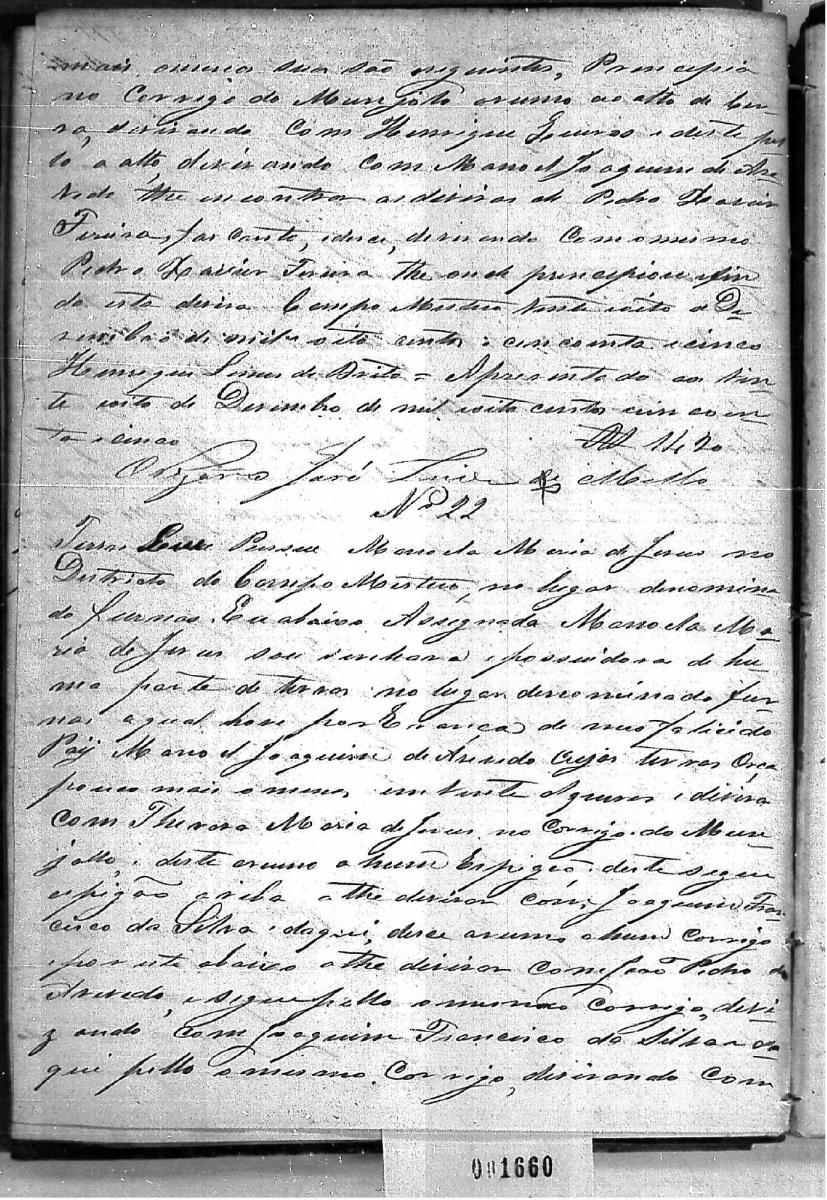 mais ou menos sua são seguintes, Principia
no Corrigo do Munjolo arumo ao alto do Ser
ra, devizando com Henrique e deste pas
to a alto, devizando com Manoel Joaquim de Aze
vedo the encontrar as devizas de Pedro Xavier
Fereira, faz canto, e dece, devizando com o mesmo
Pedro Xavier Fereira the onde principiou e fin
da esta deviza Campo Mistico vinte e oito de De
zembro de mil e oito centos e cincoenta e cinco
Henrique de Brito = Apresentado aos vin
te e oito de Dezembro de mil e oito centos cincoen
ta e cinco
O Vigario José de Mello
Nº 22
Terras Que Pussue Manoela Maria de Jesus no
Districto do Campo Mistico, no lugar denomina
do furnas. Eu abaixo Assignada Manoela Ma
ria de Jesus sou senhora e possuidora de hu
ma parte de terras no lugar denominado fur
nas aqual houve por Erança de meo falicido
Pay Manoel Joaquim de Azevedo cujas terras Orça
pouco mais o menos em vinte Alqueires e deviza
com Thereza Maria de Jesus no Corrigo do Mun
jollo, e deste arumo a hum Espigão, deste segue
espigão ariba athe devizar com Joaquim Fran
cisco da Silva e daqui, desce arumo a hum corrigo
e por este abaixo athe devizar com João Pedro de
Azevedo, e segue pello o mesmo Corrigo, devi
zando com Joaquim Francisco da Silva e da
qui pello o mesmo Corrigo, devizando com
001660